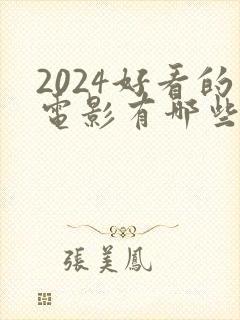 2024好看的
電影有哪些
張美鳳